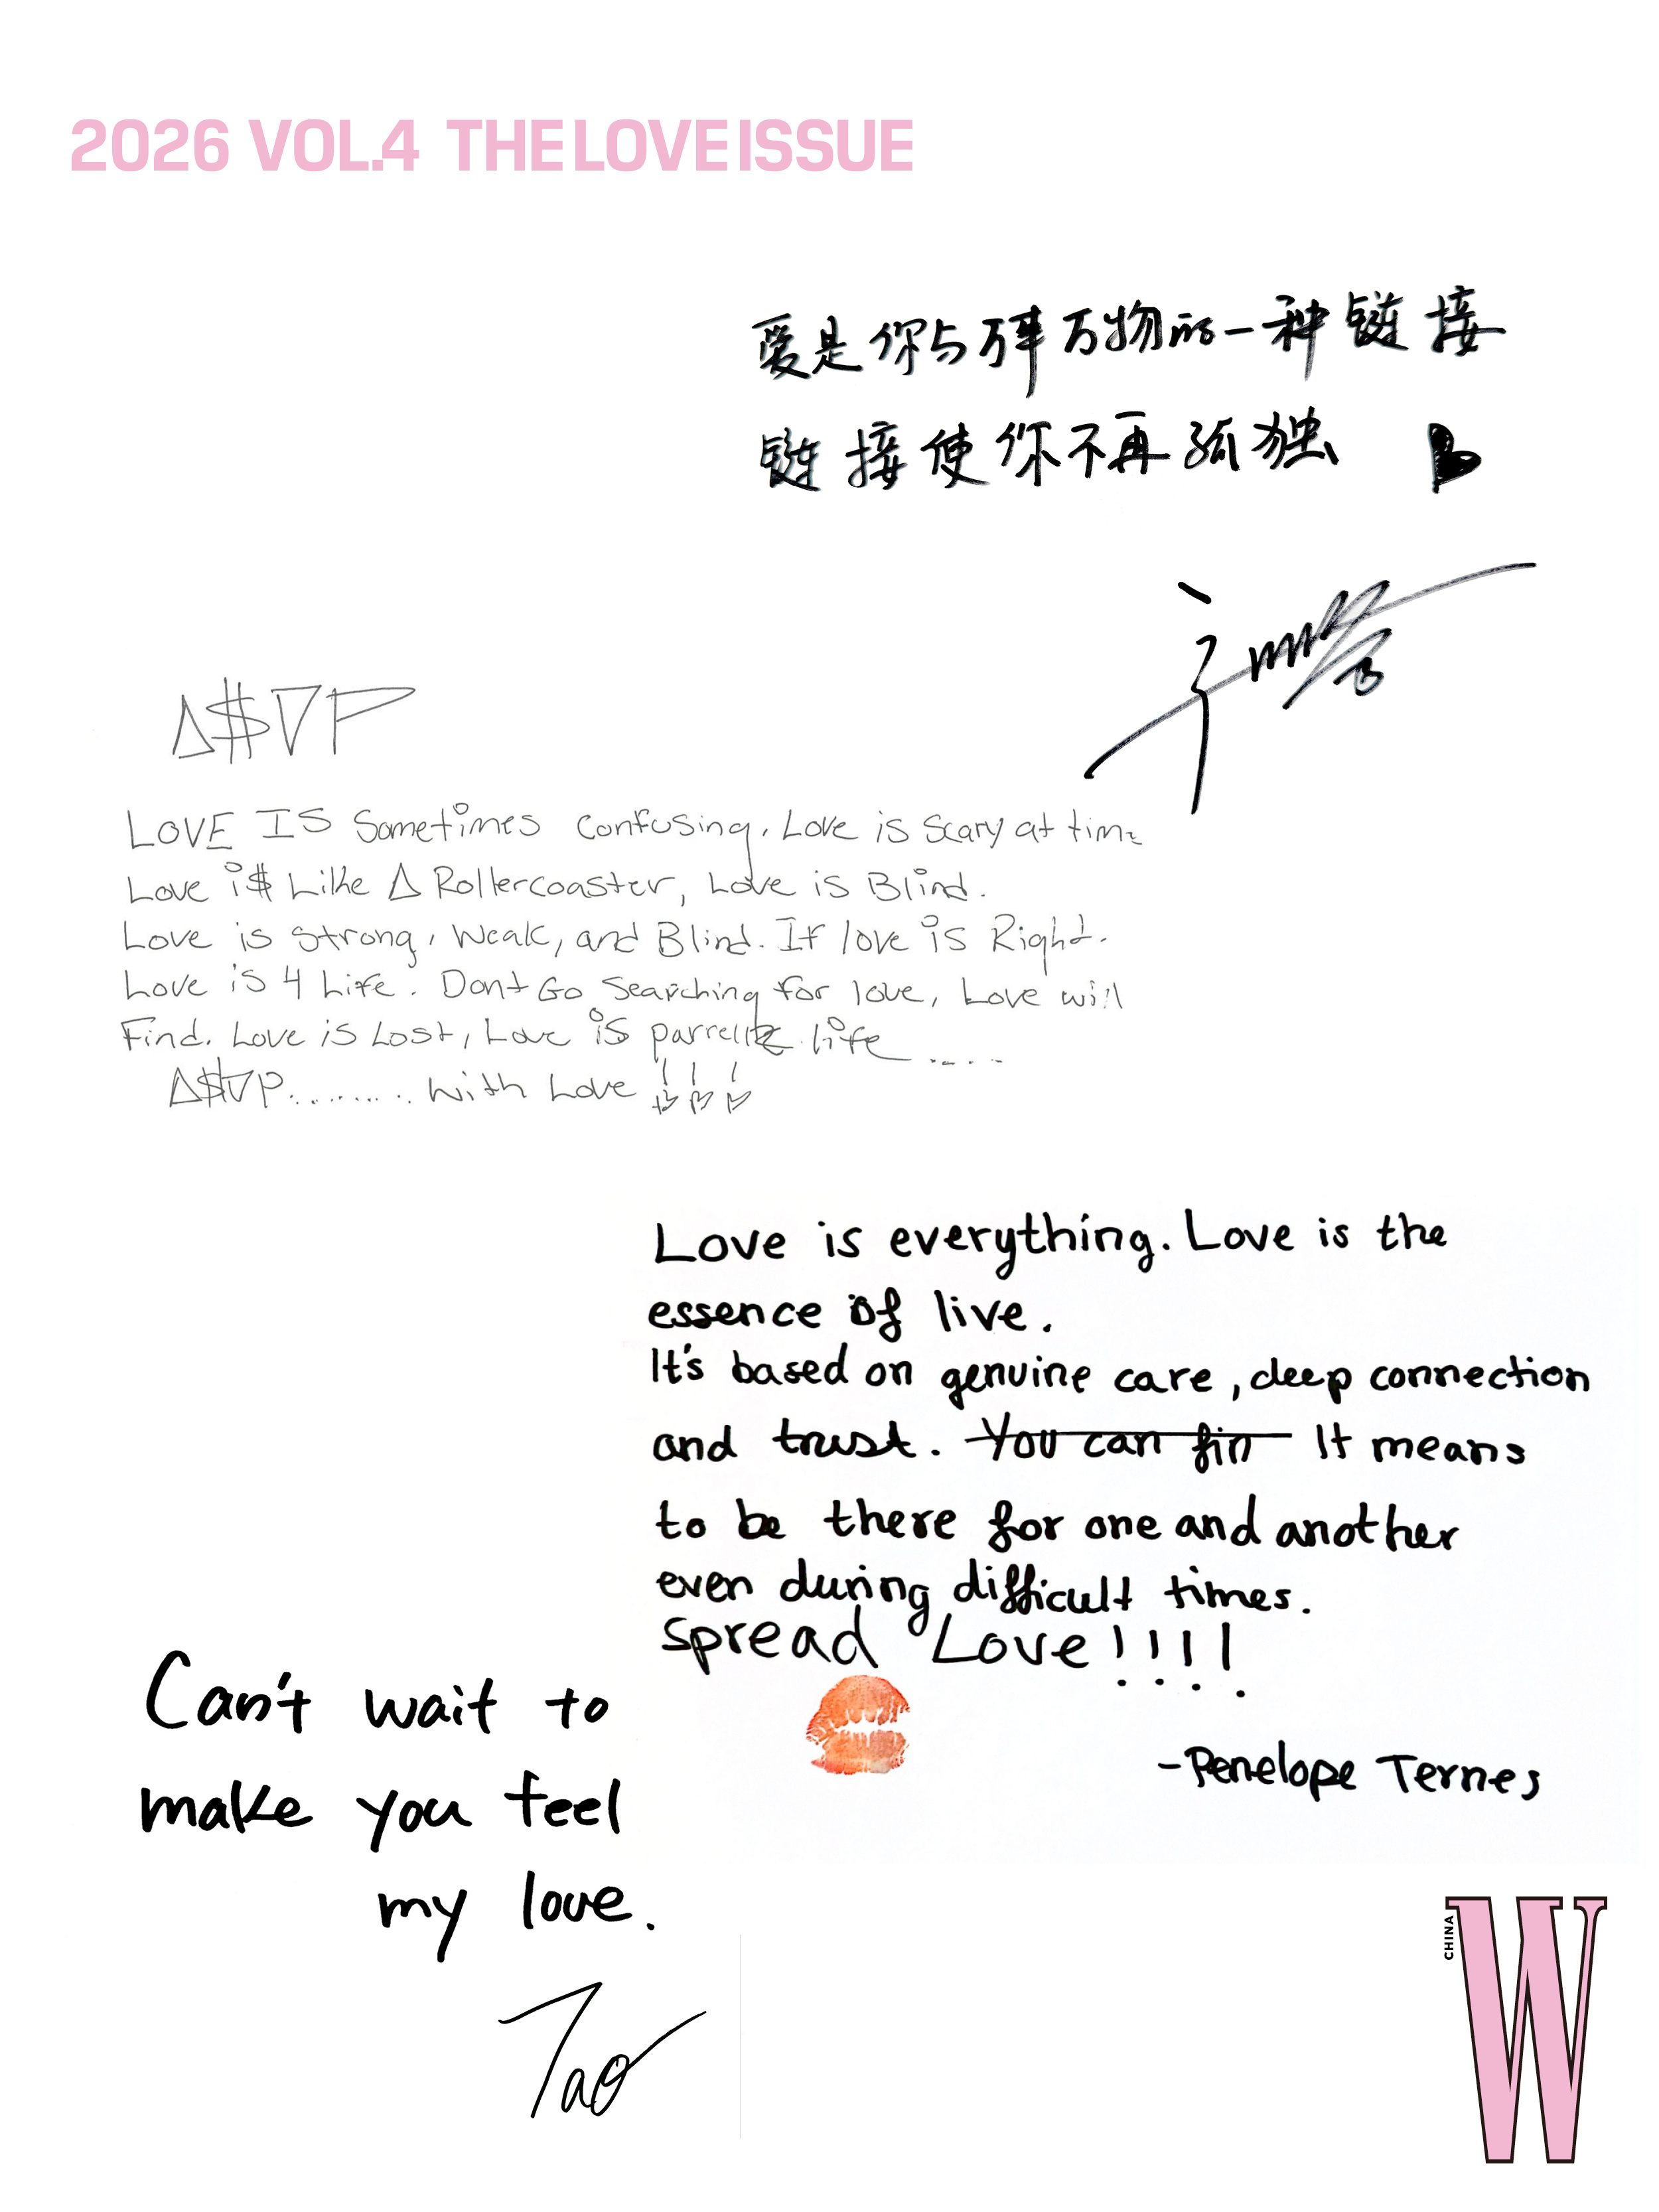 2026 VOL.4 THE LOVE ISSUE
爱是你与万事万物的一种链接
链接使你不再孤独
Δ$∇P
LOVE IS Sometimes Confusing, Love is Scary at time
Love i$ Like Δ Rollercoaster, Love is Blind.
Love is Strong, Weak, and Blind. If love is Right.
Love is 4 Life. Dont Go Searching for love, Love will
Find. Love is Lost, Love is life .....
Δ$∇P......... With Love !!!
Love is everything. Love is the
essence of live.
It's based on genuine care, deep connection
and trust. You can fin It means
to be there for one and another
even during difficult times.
Spread Love!!!!
-Penelope Ternes
Can't wait to
make you feel
my love.
Tao
CHINA
W